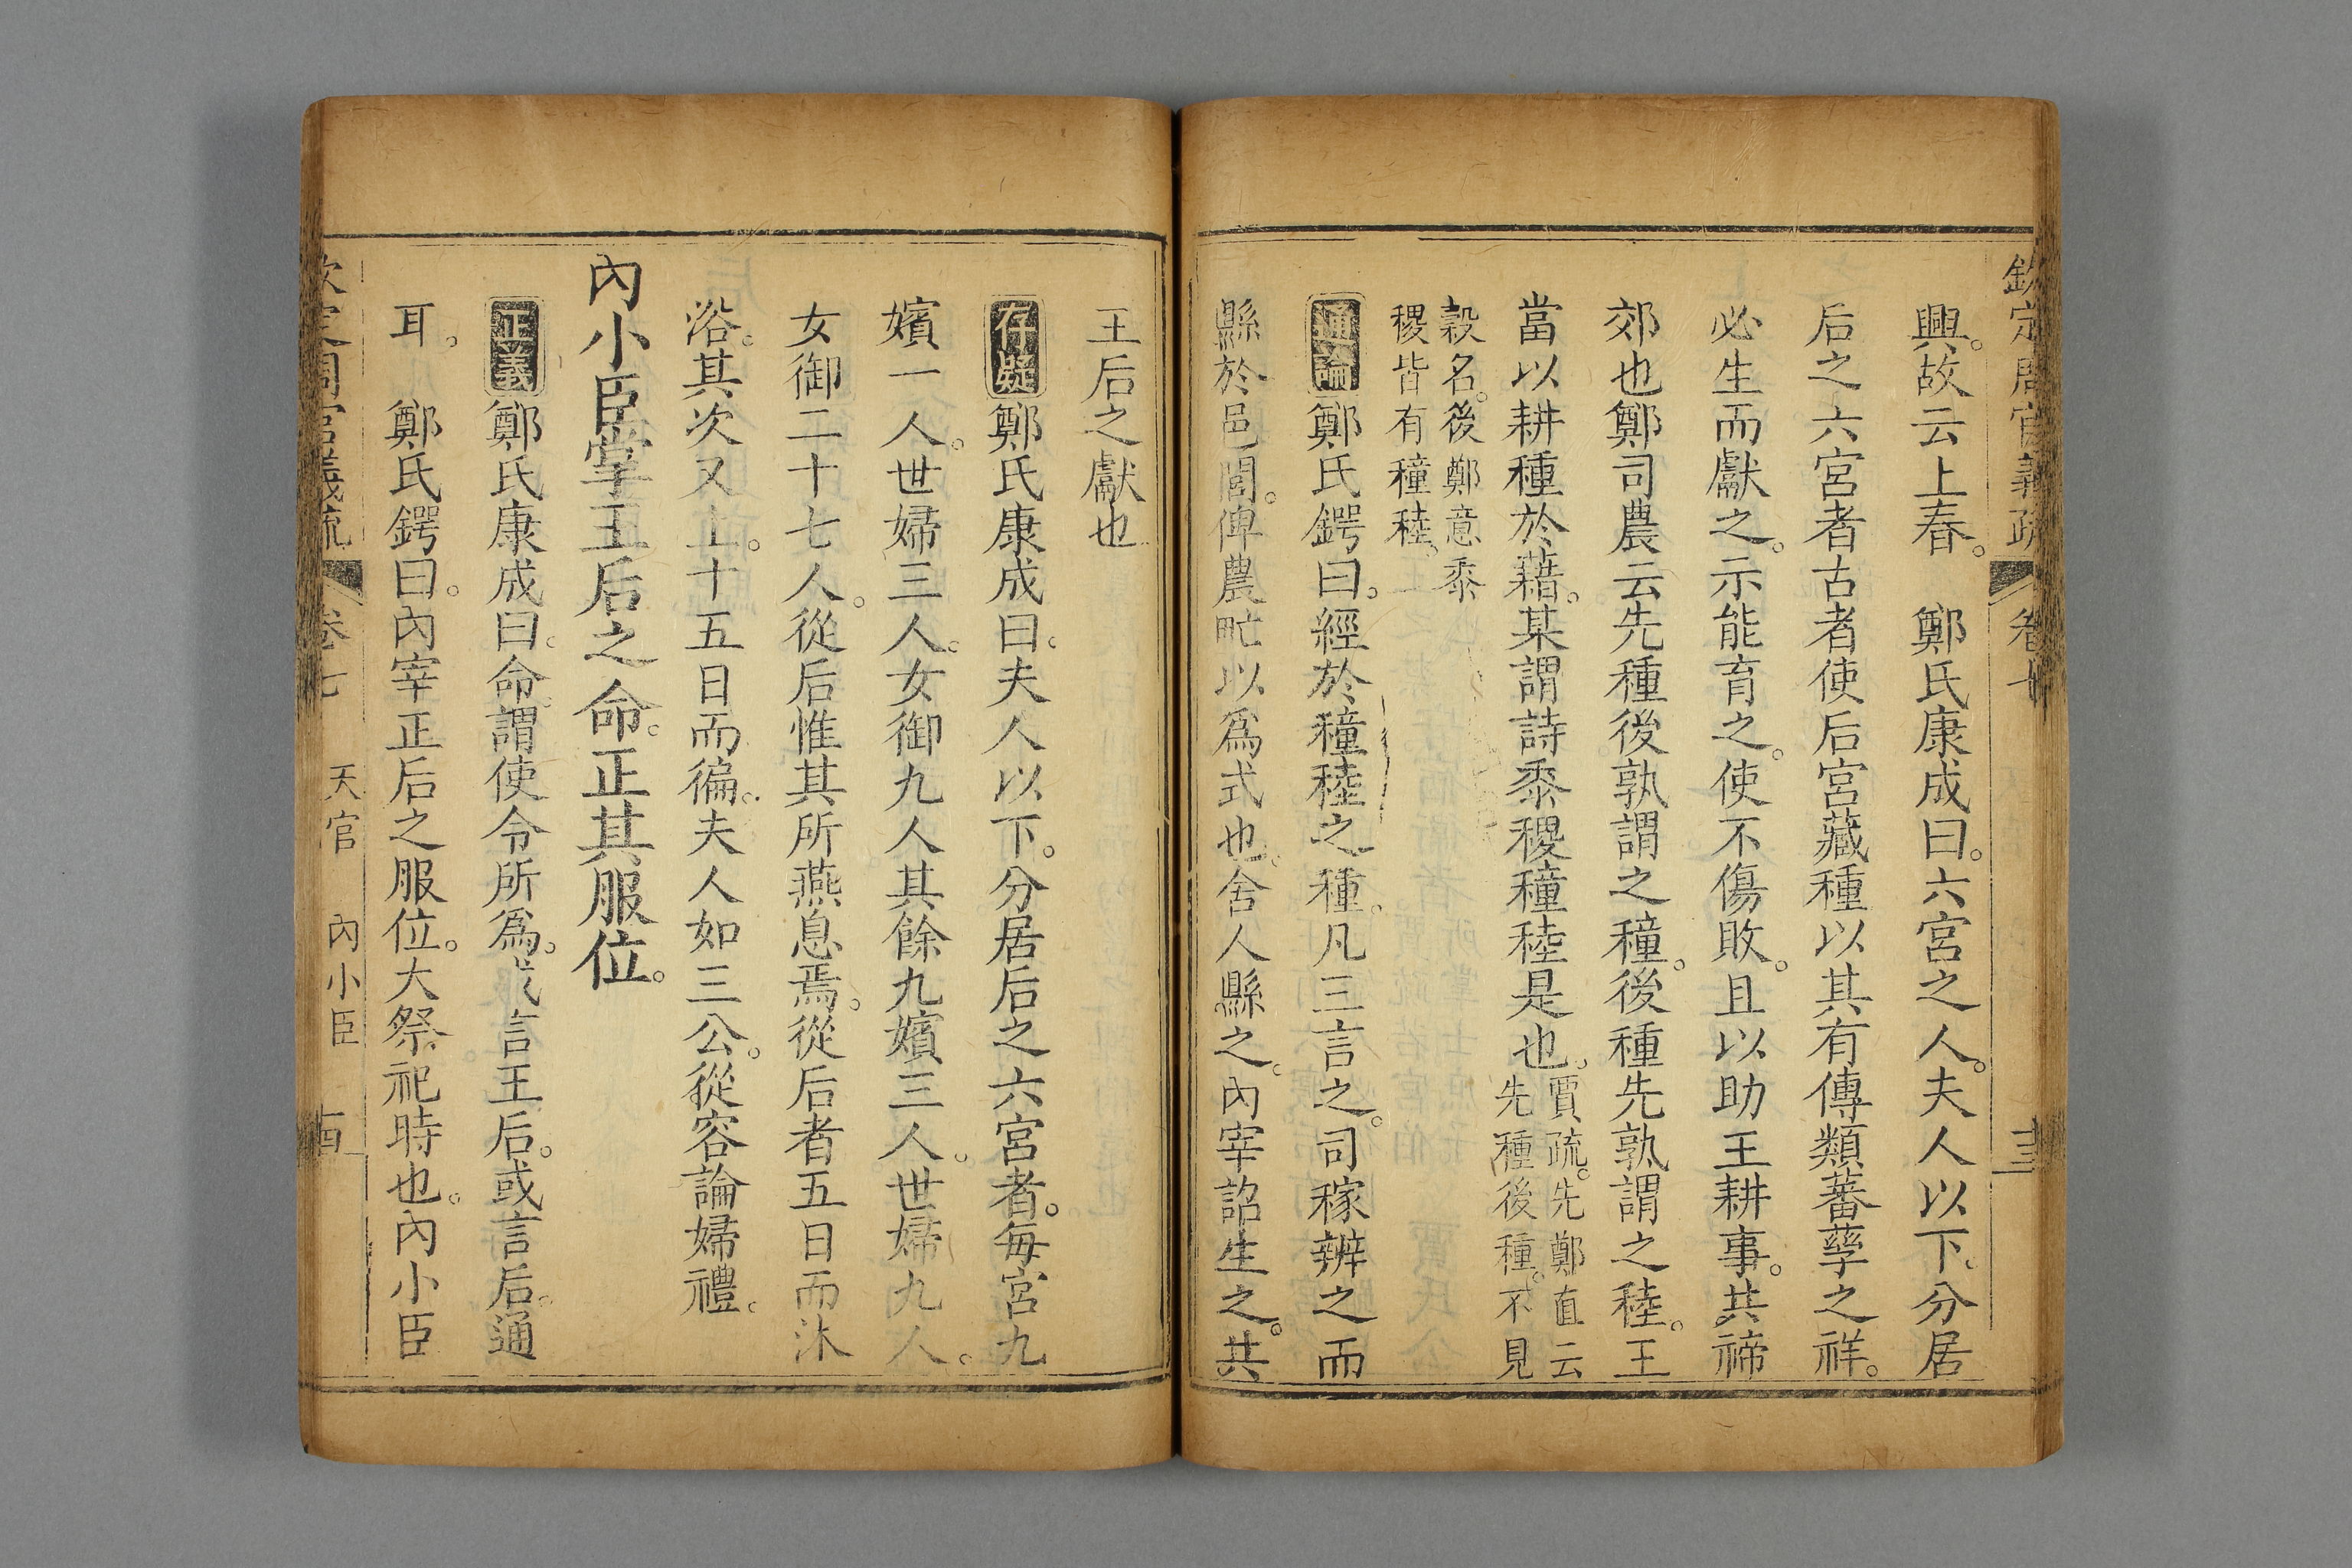 欽定周官義疏 卷七 十三
興。故云上春。 鄭氏康成曰。六宮之人。夫人以下。分居
后之六宮者古者使后宮藏種以其有傳類蕃孳之祥。
必生而獻之。示能育之。使不傷敗。且以助王耕事。共禘
郊也鄭司農云先種後孰謂之穜。後種先孰謂之稑。王
當以耕種於藉。某謂詩黍稷穜稑是也。賈疏。先鄭直云
先種後種。不見
穀名。後鄭意黍
稷皆有穜稑。
通論鄭氏鍔曰。經於穜稑之種。凡三言之。司稼辨之而
縣於邑閭。俾農甿以為式也。舍人縣之。內宰詔生之。共
王后之獻也
存疑鄭氏康成曰。夫人以下。分居后之六宮者。每宮九
嬪一人。世婦三人。女御九人其餘九嬪三人。世婦九人。
女御二十七人。從后惟其所燕息焉。從后者五日而沐
浴。其次又上。十五日而徧。夫人如三公。從容論婦禮。
內小臣掌王后之命。正其服位。
正義鄭氏康成曰。命。謂使令所為。言王后。或言后。通
耳。 鄭氏鍔曰。內宰正后之服位。大祭祀時也。內小臣
欽定周官義疏 卷七 天官 內小臣